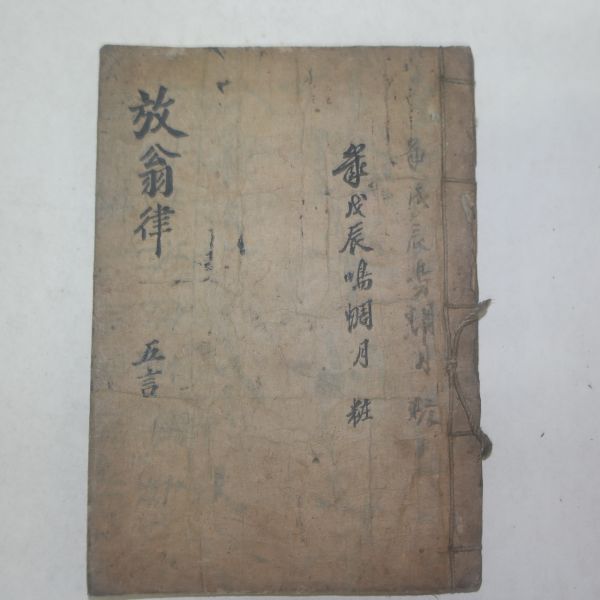 戊辰
歲戊辰鳴蜩月 粧
放翁律 五言